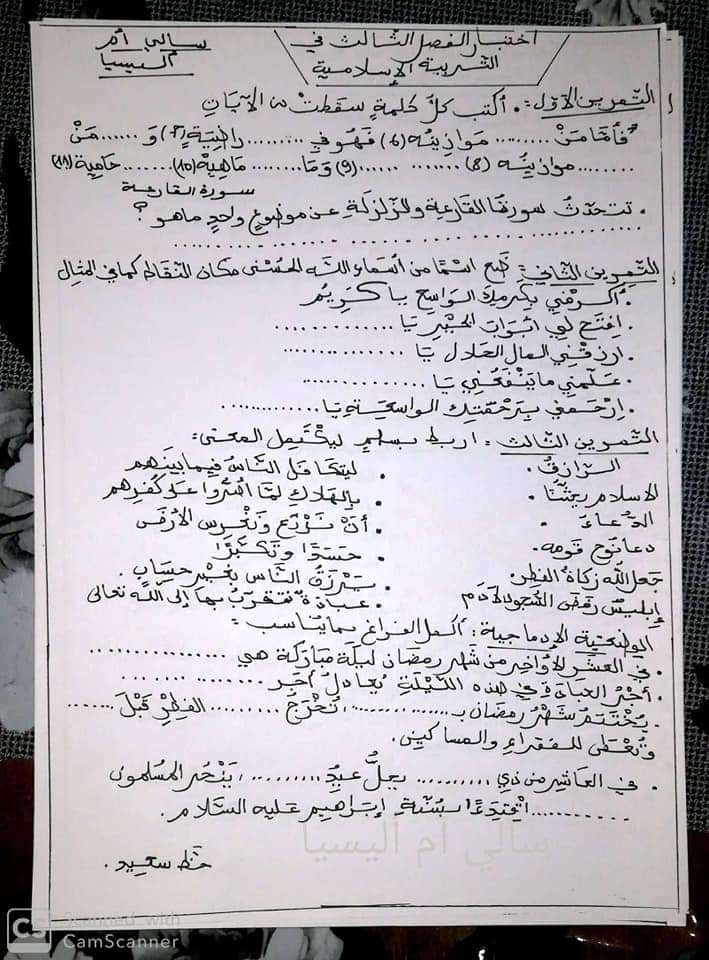 اختبار الفصل الثالث في
التربية الإسلامية
سالي أم
أليسيا
التمرين الأول: . أكتب كل كلمة سقطت من الآيات
"فأمّا مَنْ ......... موازينُه (6) فهُو في ......... راضِيَةٍ (7) وَ ...... مَنْ
........ موازينُه (8) ....... ...... (9) وَمَا ....... مَاهِيَهْ (10) ....... حَامِية (11)
سورة القارعة
. تتحدّثُ سورتا القارعة والزلزلة عن موضوعٍ واحدٍ ماهو ؟
التمرين الثاني: ضع اسمًا من أسماء الله الحُسْنى مكان النقاط كمافي المثال
. أكْرِمْني بِكرمِك الواسِعِ يا كَرِيمُ
. افتَح لي أبوَابَ الخَيْرِ يَا ............
. ارزقْنِي المال الحَلال يَا ............
. عَلِّمْنِي مايَنْفَعُنِي يَا ............
. اِرْحَمنِي بِرَحْمَتِك الواسِعَةِ يَا ............
التمرين الثالث: اربط بسهمٍ ليكْتَمِل المعنى:
الرّازِقُ . . ليتكافَل النَّاسُ فيما بينَهم
الإسلام يحثّنا . . بالهلاكِ لمّا أصرُّوا على كُفرِهم
الدّعاءُ . . أنْ نَزْرَعَ ونَغْرِس الأرْضَ
دعا نوح قومه . . حسدًا وتكبّرًا
جعل الله زكاة الفطر . . يَرْزُقُ النَّاس بغَيْرِ حِسَابٍ .
إبليسُ رفض السُّجودَ لآدَم . عبادَة نتقرّبُ بها إلى الله تعالى
الوضعيّة الإدماجية: أكمل الفراغ بمايُناسب :
. في العَشْرِ الأواخر من شَهْرِ رمَضَان ليلَة مُبَارَكة هي ............
. أجْرُ العِبادَة في هذه اللّيْلَةِ يُعادِلُ أجرَ ............
. يُخْتَتمُ شهْرُ رمضان بـ ............ , تُخْرَجُ ......... الفِطْرِ قَبْلَ ......
وتُعْطى للفقراءِ والمساكين.
. في العاشر من ذي ......... يحلُّ عيدُ ......... , يَنْحَرُ المسلمون
......... اقتِدَاءً بسُنّةِ إبْرَاهِيم عليه السَّلام .
سالي أم أليسيا
حظ سعيد .
CS
Scanned with
CamScanner